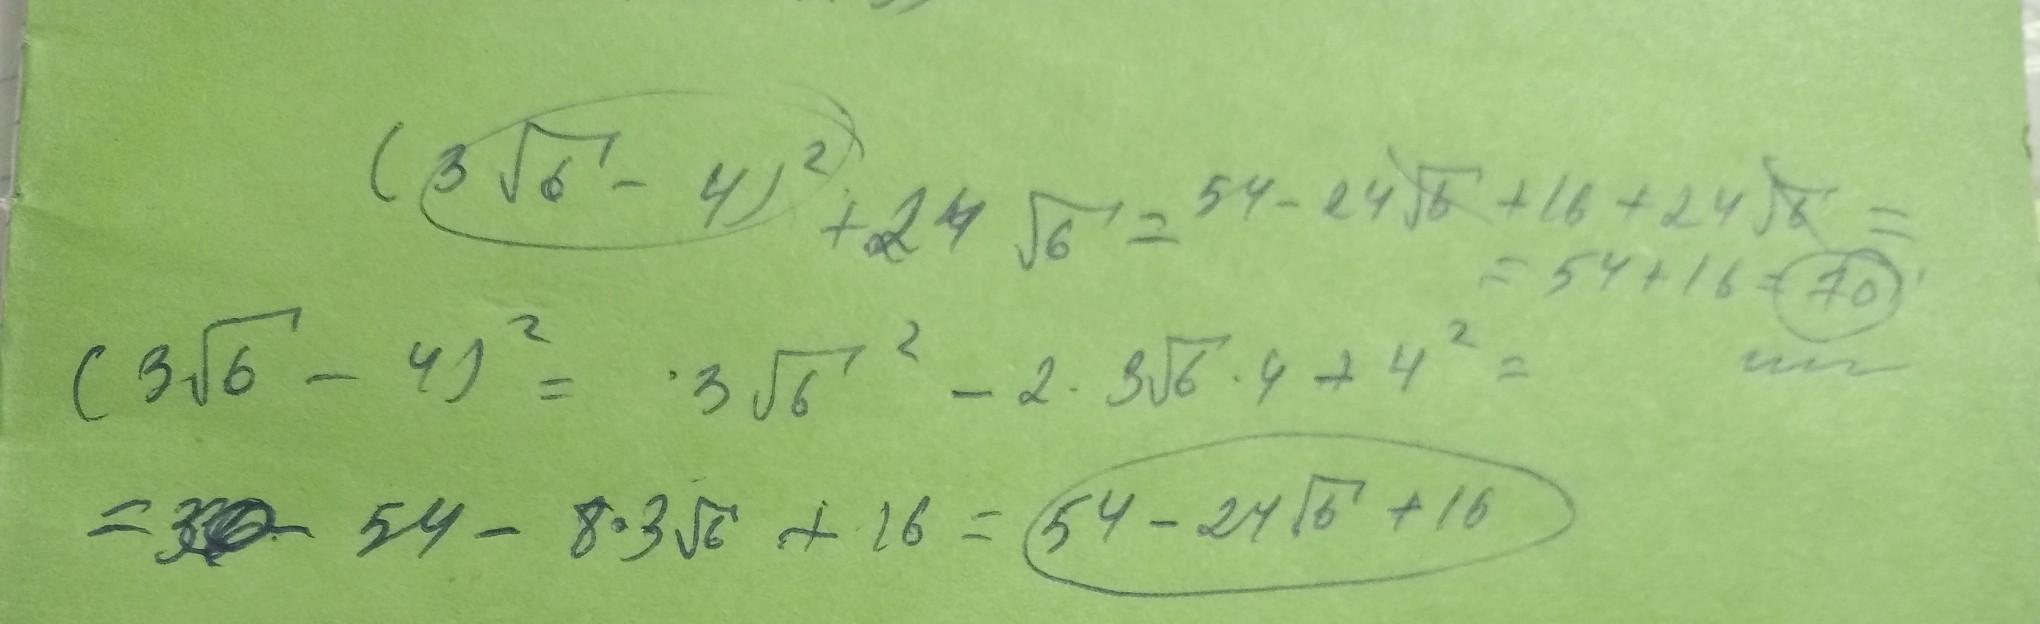 (3√6 - 4)² + 24 √6 = 54 - 24√6 + 16 + 24√6 =
= 54 + 16 = 70
(3√6 - 4)² = 3√6² - 2 · 3√6 · 4 + 4² =
= 54 - 8·3√6 + 16 = 54 - 24√6 + 16